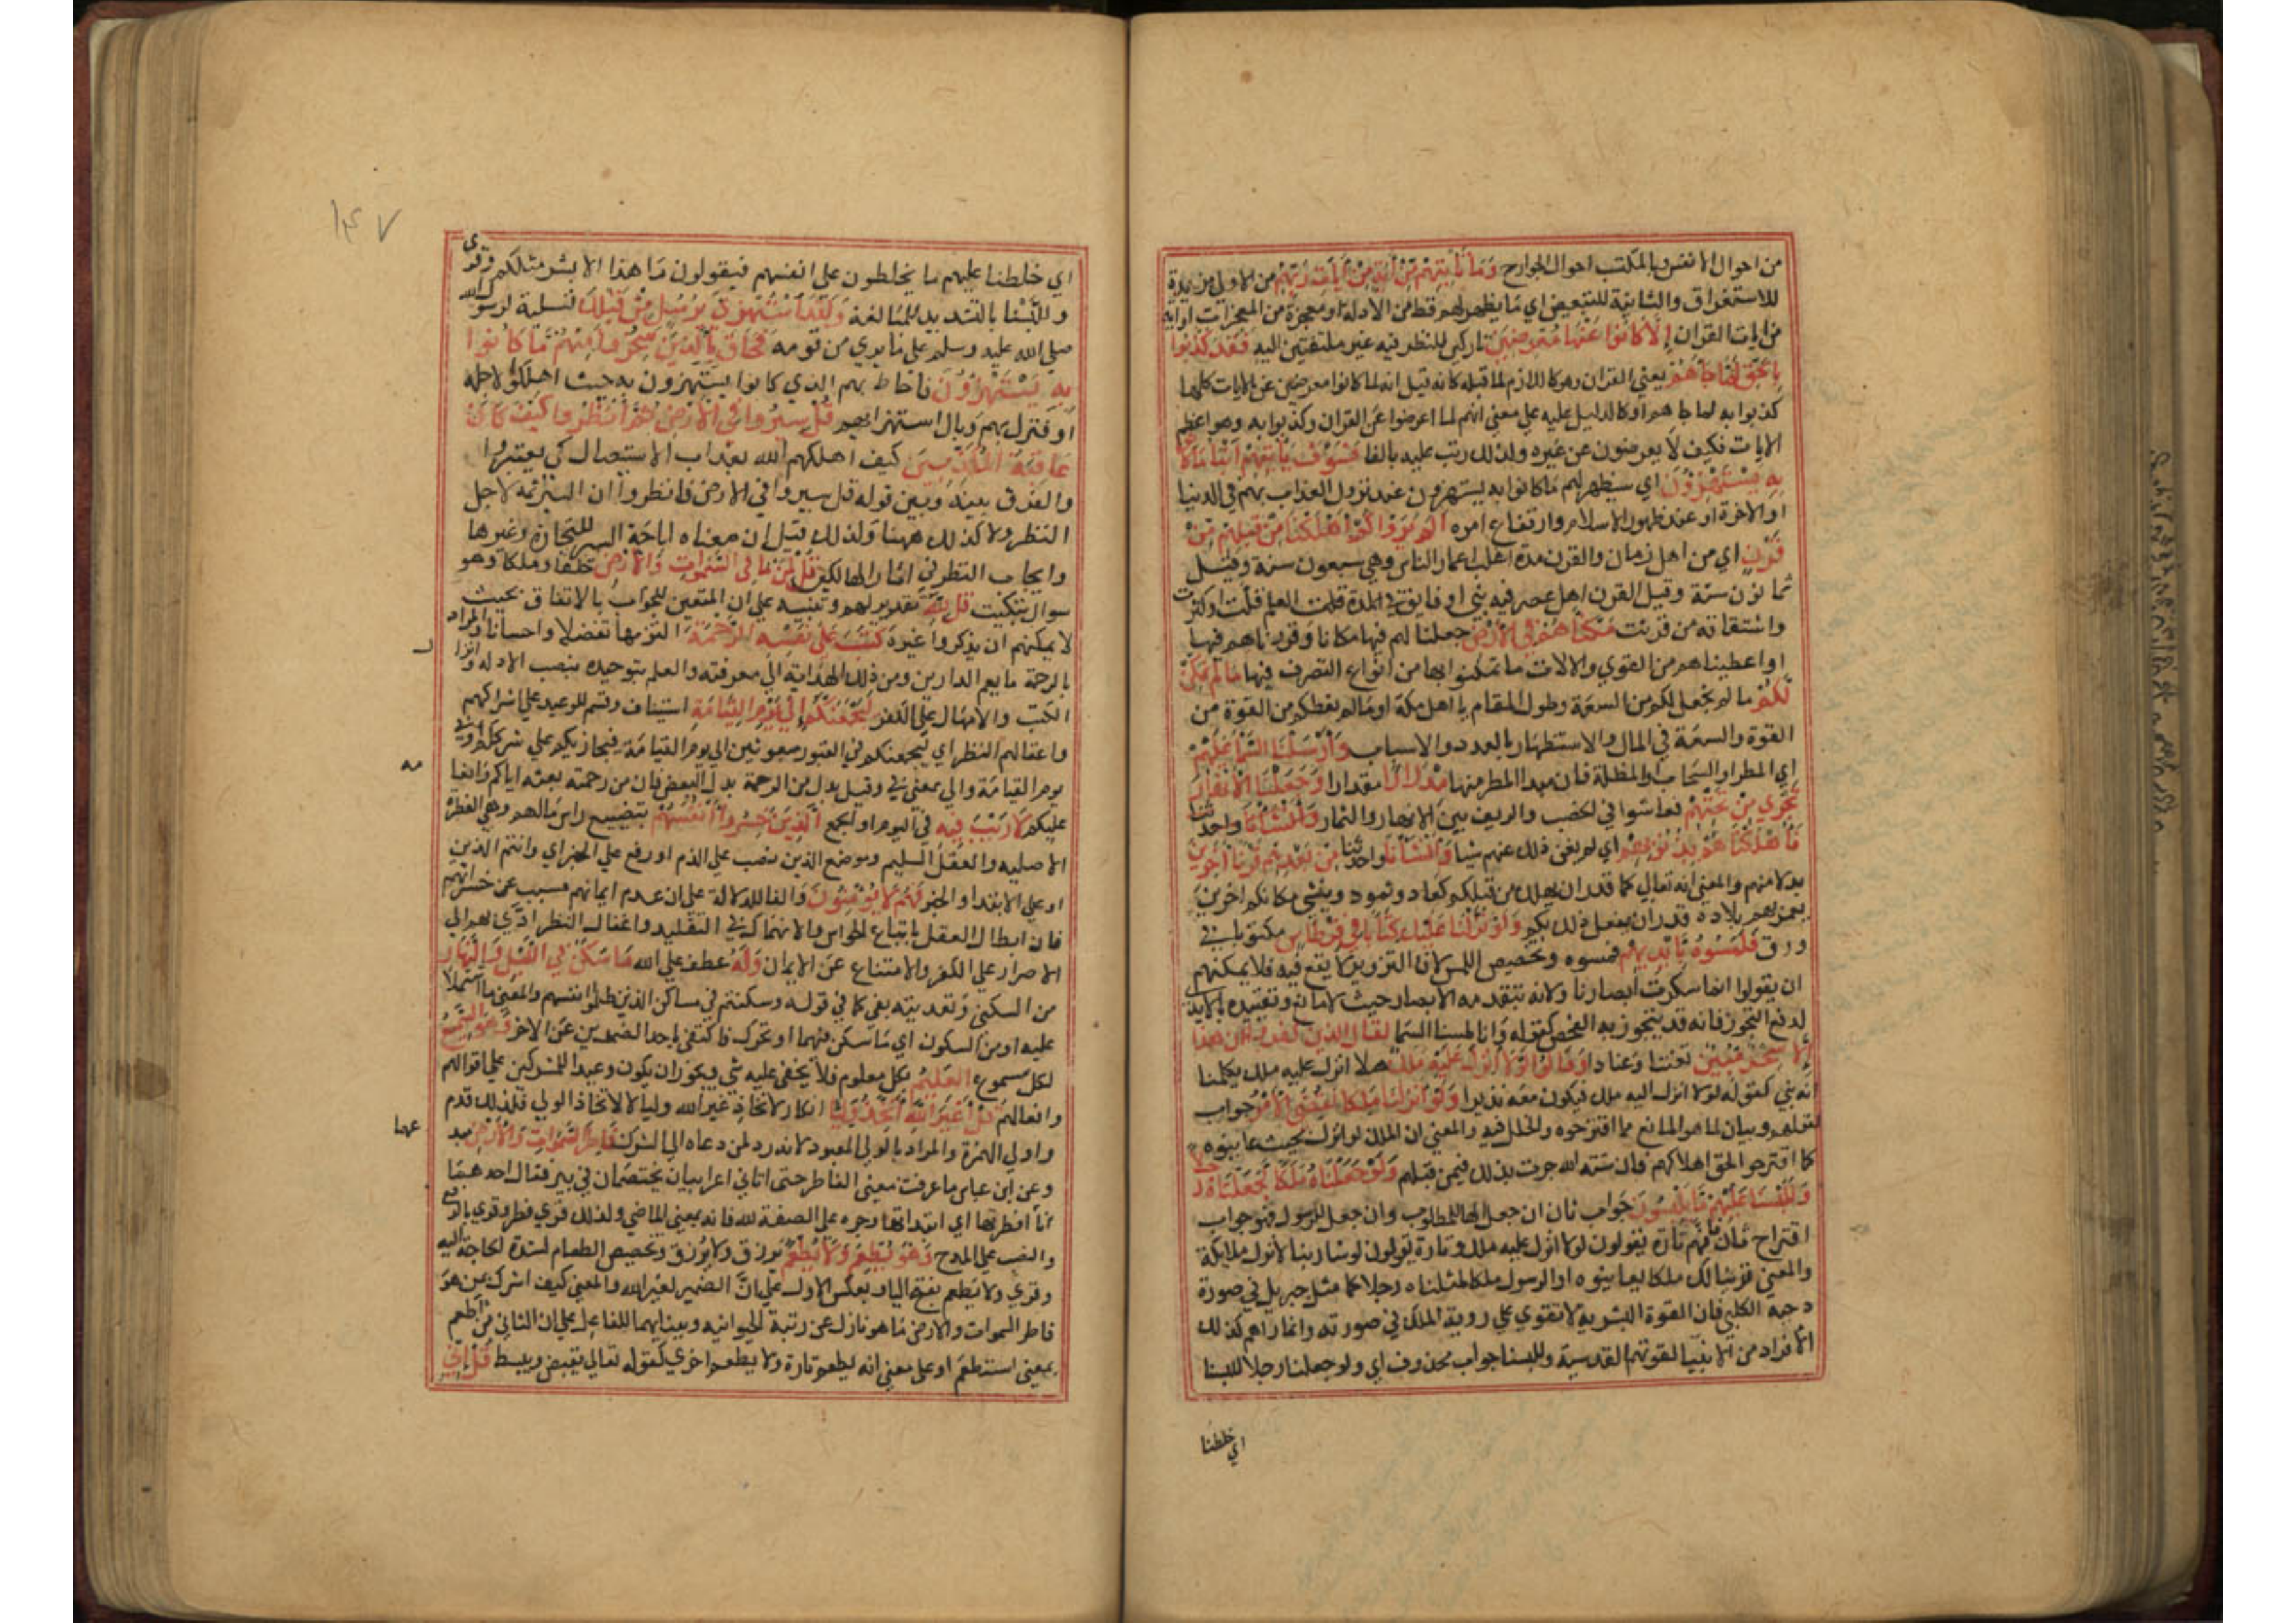 من احوال الانفس وبالمكتسب احوال الجوارح وَمَا تَأْتِيهِمْ مِّنْ آيَةٍ مِّنْ آيَاتِ رَبِّهِمْ من الاولى مزيدة
للاستغراق والثانية للتبعيض اي ما يظهر لهم قط من الادلة او معجزة من المعجزات او اية
من ايات القران إِلَّا كَانُوا عَنْهَا مُعْرِضِينَ تاركين للنظر فيه غير ملتفتين اليه فَقَدْ كَذَّبُوا
بِالْحَقِّ لَمَّا جَاءَهُمْ يعني القران وهو كاللازم لما قبله كانه قيل انه لما كانوا معرضين عن الايات كلها
كذبوا به لما جاهم او كالدليل عليه على معنى انهم لما اعرضوا عن القران وكذبوا به وهو اعظم
الايات فكيف لا يعرضون عن غيره ولذلك رتب عليه بالفا فَسَوْفَ يَأْتِيهِمْ أَنْبَاءُ مَا كَانُوا
بِهِ يَسْتَهْزِؤُنَ اي سيظهر لهم ما كانوا به يستهزون عند نزول العذاب بهم في الدنيا
او الاخرة او عند ظهور الاسلام وارتفاع امره أَلَمْ يَرَوْا كَمْ أَهْلَكْنَا مِنْ قَبْلِهِمْ مِنْ
قَرْنٍ اي من اهل زمان والقرن مدة اغلب اعمار الناس وهي سبعون سنة وقيل
ثمانون سنة وقيل القرن اهل عصر فيه نبي او فايق في المدة قلت العلم قلت او كثرت
واشتقاقه من قرنت مَكَّنَّاهُمْ فِي الْأَرْضِ جعلنا لهم فيها مكانا وقررناهم فيها
او اعطيناهم من القوي والالات ما تمكنوا بها من انواع التصرف فيها مَا لَمْ نُمَكِّنْ
لَكُمْ ما لم نجعل لكم من السعة وطول المقام يا اهل مكة او ما لم نعطكم من القوة من
القوة والسعة في المال والاستظهار بالعدد والاسباب وَأَرْسَلْنَا السَّمَاءَ عَلَيْهِمْ
اي المطر او السحاب والمظلة فان مبدا المطر منها مِدْرَارًا مقدارا وَجَعَلْنَا الْأَنْهَارَ
تَجْرِي مِنْ تَحْتِهِمْ فعاشوا في الخصب والريف بين الانهار والثمار
فَأَهْلَكْنَاهُمْ بِذُنُوبِهِمْ اي لم يغن ذلك عنهم شيا وَأَنْشَأْنَا واحدثنا مِنْ بَعْدِهِمْ قَرْنًا آخَرِينَ
بدلا منهم والمعنى انه تعالى كما قدر ان يهلك من قبلكم كعاد وثمود وينشي مكانكم اخرين
يعمر بهم بلاده قدر ان يفعل ذلك بكم وَلَوْ نَزَّلْنَا عَلَيْكَ كِتَابًا فِي قِرْطَاسٍ مكتوبا في
ورق فَلَمَسُوهُ بِأَيْدِيهِمْ فمسوه وتخصيص اللمس لان التزوير لا يقع فيه فلا يمكنهم
ان يقولوا انما سكرت ابصارنا ولانه يتقدمه الابصار حيث لا مانع وتقييده بالايدي
لدفع التجوز فانه قد يتجوز به للفحص كقوله وانا لمسنا السما لَقَالَ الَّذِينَ كَفَرُوا إِنْ هَذَا
إِلَّا سِحْرٌ مُبِينٌ تعنتا وعنادا وَقَالُوا لَوْلَا أُنْزِلَ عَلَيْهِ مَلَكٌ هلا انزل عليه ملك يكلمنا
انه نبي كقوله لولا انزل اليه ملك فيكون معه نذيرا وَلَوْ أَنْزَلْنَا مَلَكًا لَقُضِيَ الْأَمْرُ جواب
لقولهم وبيان لما هو المانع مما اقترحوه والخلل فيه والمعنى ان الملك لو انزل بحيث عاينوه
كما اقترحوا لحق اهلاكهم فان سنة الله جرت بذلك فيمن قبلهم وَلَوْ جَعَلْنَاهُ مَلَكًا لَجَعَلْنَاهُ رَجُلًا
وَلَلَبَسْنَا عَلَيْهِمْ مَا يَلْبِسُونَ جواب ثان ان جعل الها للمطلوب وان جعل للرسول فهو جواب
اقتراح ثان فانهم تارة يقولون لولا انزل عليه ملك وتارة يقولون لو شا ربنا لانزل ملايكة
والمعنى ولو جعلنا لك ملكا يعاينوه او الرسول ملكا لمثلناه رجلا كما مثل جبريل في صورة
دحية الكلبي فان القوة البشرية لا تقوي على روية الملك في صورته وانما راهم كذلك
الافراد من الانبيا لقوتهم القدسية وللبسنا جواب محذوف اي ولو جعلناه رجلا للبسنا
اي خلطنا
١٤٧
اي خلطنا عليهم ما يخلطون على انفسهم فيقولون ما هذا الا بشر مثلكم وقري
وللبسنا بالتشديد للمبالغة وَلَقَدِ اسْتُهْزِئَ بِرُسُلٍ مِنْ قَبْلِكَ تسلية لرسول الله
صلى الله عليه وسلم على ما يري من قومه فَحَاقَ بِالَّذِينَ سَخِرُوا مِنْهُمْ مَا كَانُوا
بِهِ يَسْتَهْزِؤُنَ فاحاط بهم الذي كانوا يستهزون به حيث اهلكوا لاجله
او فنزل بهم وبال استهزائهم قُلْ سِيرُوا فِي الْأَرْضِ ثُمَّ انْظُرُوا كَيْفَ كَانَ
عَاقِبَةُ الْمُكَذِّبِينَ كيف اهلكهم الله بعذاب الاستيصال كي يعتبروا
والفرق بينه وبين قوله قل سيروا في الارض فانظروا ان السير ثمة لاجل
النظر ولا كذلك ههنا ولذلك قيل ان معناه اباحة السير للتجارة وغيرها
وايجاب النظر في اثار الهالكين قُلْ لِمَنْ مَا فِي السَّمَوَاتِ وَالْأَرْضِ خلقا وملكا وهو
سوال تبكيت قُلْ لِلَّهِ تقرير لهم وتنبيه على ان المتعين للجواب بالاتفاق بحيث
لا يمكنهم ان يذكروا غيره كَتَبَ عَلَى نَفْسِهِ الرَّحْمَةَ التزمها تفضلا واحسانا والمراد
بالرحمة ما يعم الدارين ومن ذلك الهداية الى معرفته والعلم بتوحيده بنصب الادلة وانزال
الكتب والامهال على الكفر لَيَجْمَعَنَّكُمْ إِلَى يَوْمِ الْقِيَامَةِ استيناف وقسم للوعيد على اشراكهم
واغفالهم النظر اي ليجمعنكم في القبور مبعوثين الى يوم القيامة فيجازيكم على شرككم او في
يوم القيامة والى بمعنى في وقيل بدل من الرحمة بدل البعض فان من رحمته بعثه اياكم وانعامه
عليكم لَا رَيْبَ فِيهِ في اليوم او الجمع الَّذِينَ خَسِرُوا أَنْفُسَهُمْ بتضييع راس مالهم وهي الفطرة
الاصلية والعقل السليم وموضع الذين نصب على الذم او رفع على الخبر اي وانتم الذين
او على الابتدا والخبر فَهُمْ لَا يُؤْمِنُونَ والفا للدلالة على ان عدم ايمانهم مسبب عن خسرانهم
فان ابطال العقل باتباع الحواس والانهماك في التقليد واغفال النظر ادي بهم الى
الاصرار على الكفر والامتناع عن الايمان وَلَهُ عطف على الله مَا سَكَنَ فِي اللَّيْلِ وَالنَّهَارِ
من السكنى وتعديته بفي كما في قوله وسكنتم في مساكن الذين ظلموا انفسهم والمعنى ما اشتملا
عليه او من السكون اي ما سكن فيهما او تحرك فاكتفى باحد الضدين عن الاخر وَهُوَ السَّمِيعُ
لكل مسموع الْعَلِيمُ بكل معلوم فلا يخفى عليه شي ويجوز ان يكون وعيدا للمشركين على اقوالهم
وافعالهم قُلْ أَغَيْرَ اللَّهِ أَتَّخِذُ وَلِيًّا انكار لاتخاذ غير الله وليا لا لاتخاذ الولي فلذلك قدم
عهما
واولي الهمزة والمراد بالولي المعبود لانه رد لمن دعاه الى الشرك فَاطِرِ السَّمَوَاتِ وَالْأَرْضِ مبد
وعن ابن عباس ما عرفت معنى الفاطر حتى اتاني اعرابيان يختصمان في بير فقال احدهما
انا افطرتها اي ابتداتها وجره على الصفة لله فانه بمعنى الماضي ولذلك قري فطر وقري بالرفع
والنصب على المدح وَهُوَ يُطْعِمُ وَلَا يُطْعَمُ يرزق ولا يرزق وتخصيص الطعام لشدة الحاجة اليه
وقري ولا يطعم بفتح الياء وبعكس الاول على ان الضمير لغير الله والمعنى كيف اشرك بمن هو
فاطر السموات والارض ما هو نازل عن رتبة الحيوانية وببنايهما للفاعل على ان الثاني من اطعم
بمعنى استطعم او على معنى انه يطعم تارة ولا يطعم اخري كقوله تعالى يقبض ويبسط قُلْ إِنِّي